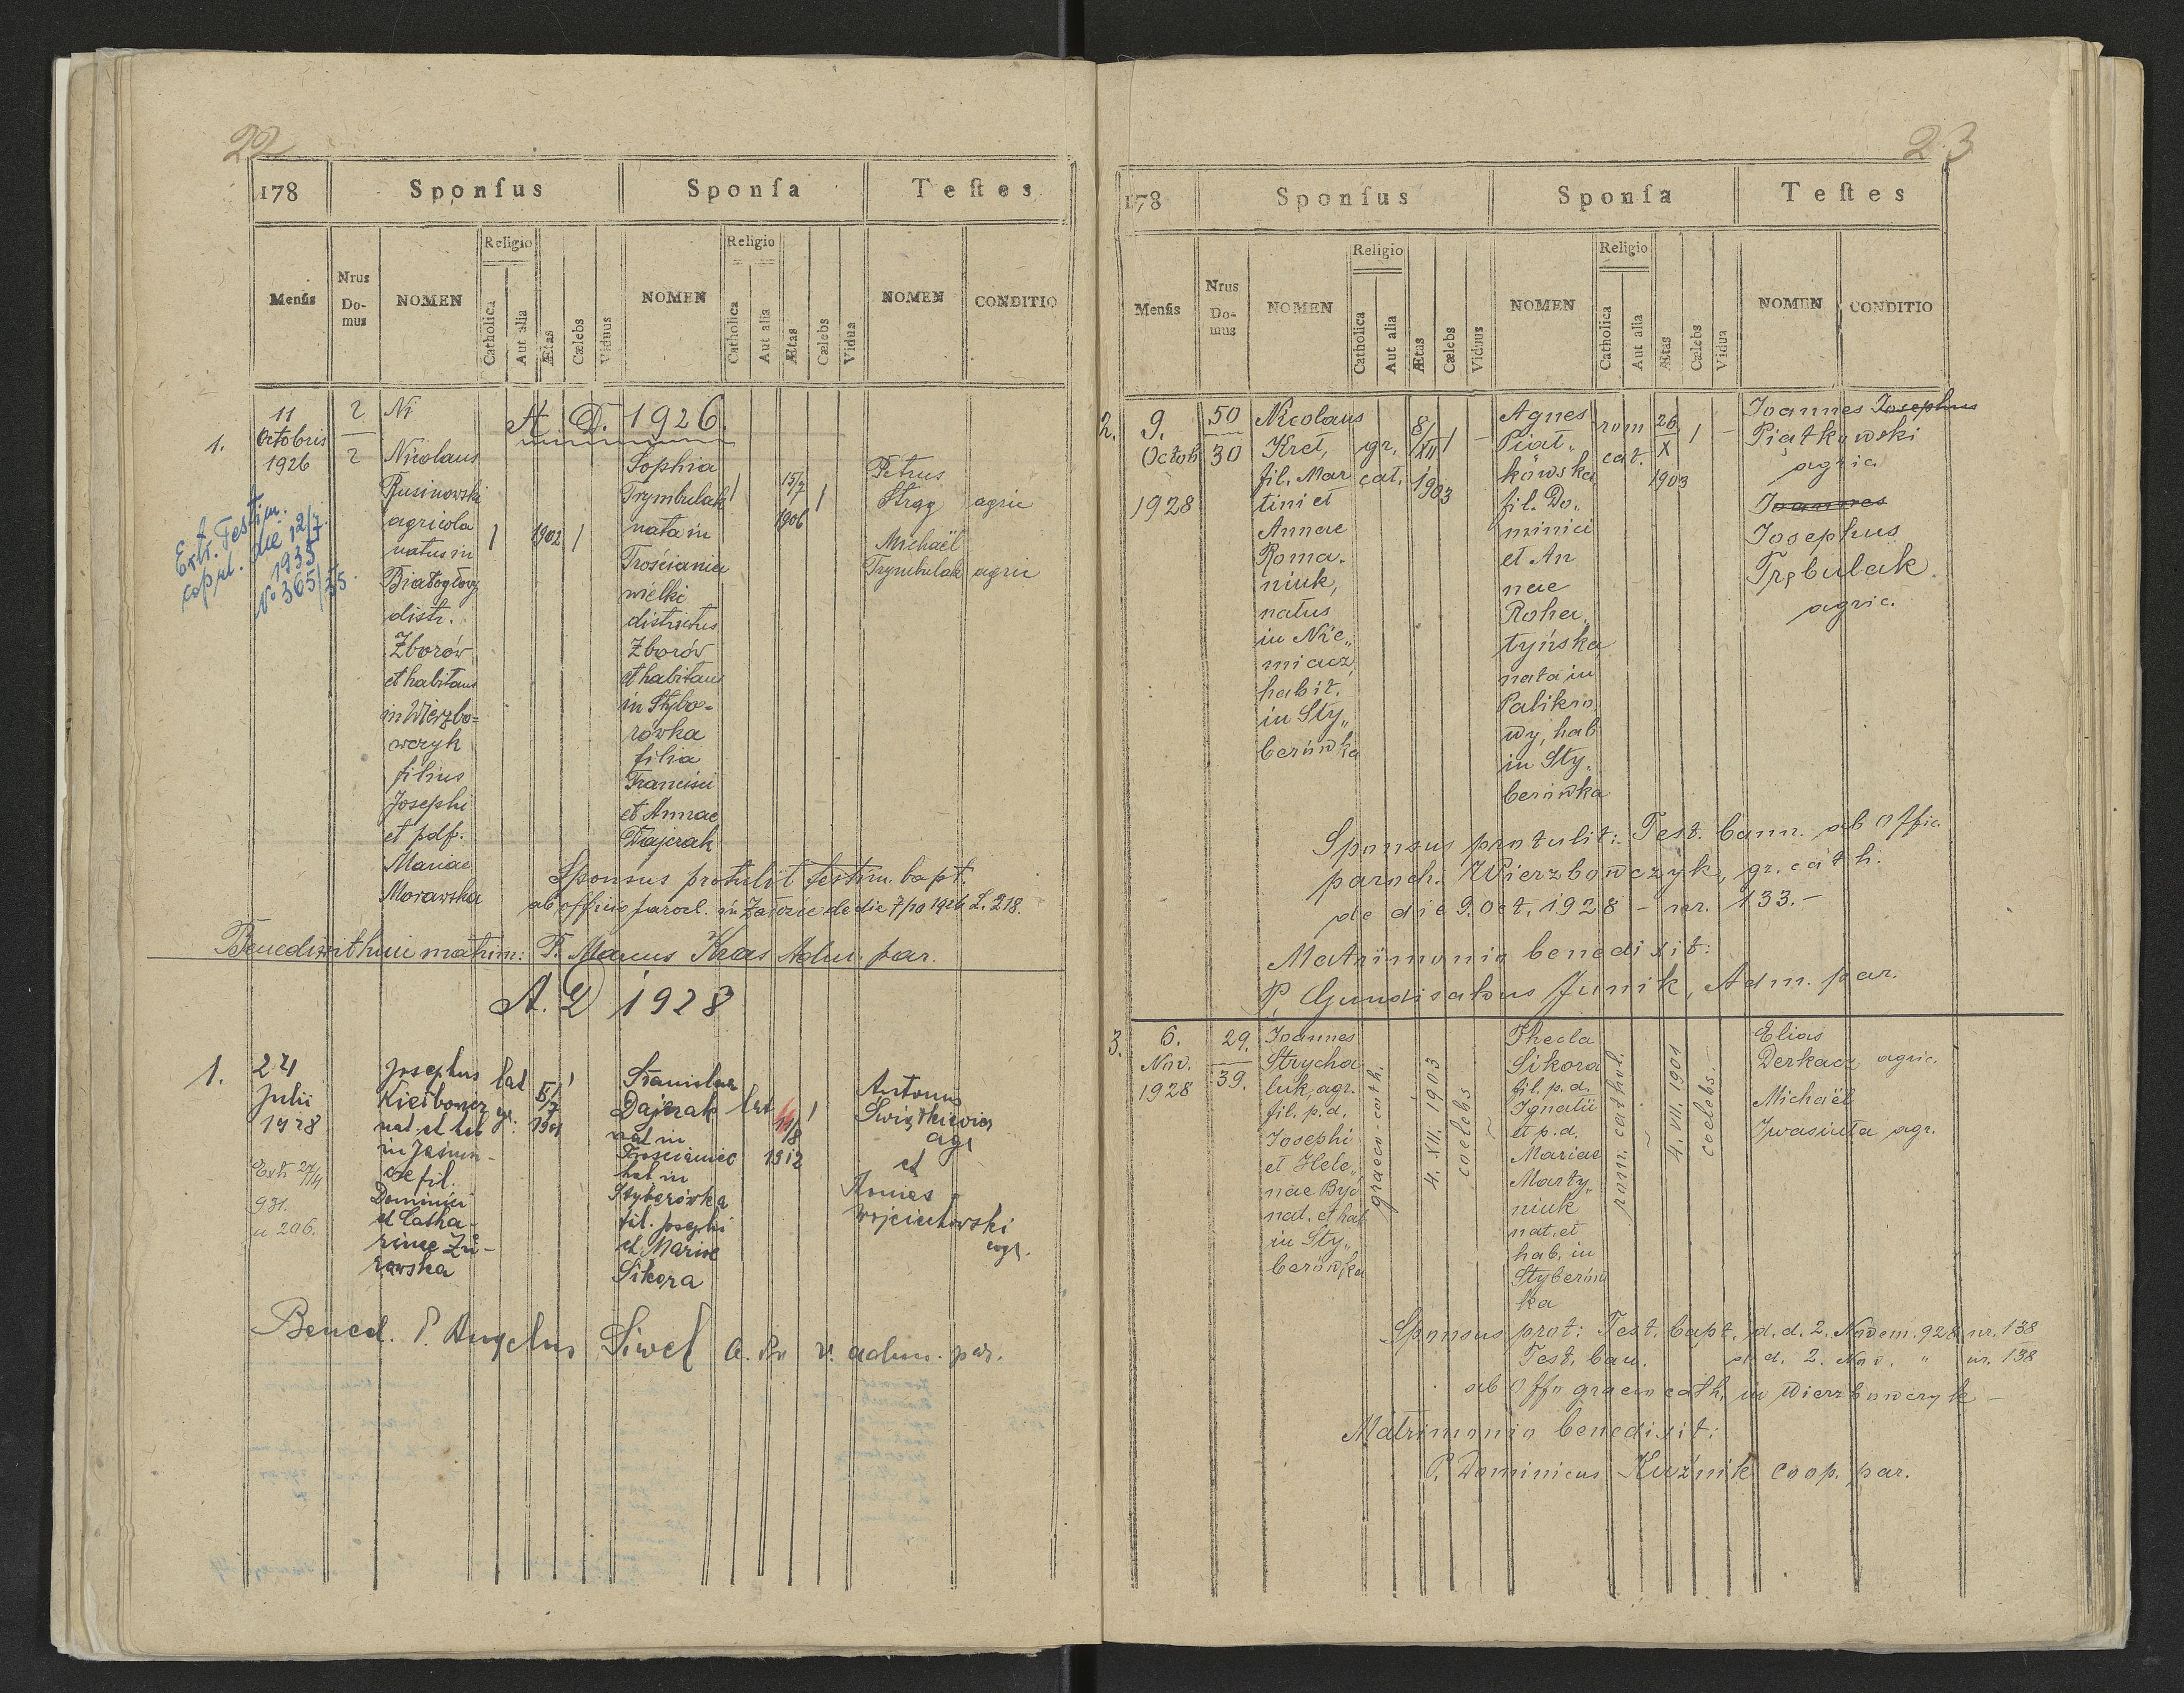 22
178 Sponſus Sponſa Teſtes
Menſis Nrus Domus NOMEN Religio Catholica Aut alia Ætas Cælebs Viduus NOMEN Religio Catholica Aut alia Ætas Cælebs Vidua NOMEN CONDITIO
A. D. 1926.
1.
11
Octobris
1926
2
2
Ni
Nicolaus
Rusinowski
agricola
natus in
Białogłowy
distr.
Zborów
et habitans
in Wierzbo=
wczyk
filius
Josephi
et pdf.
Mariae
Morawska
1902
Sophia
Trymbulak
nata in
Trościaniec
wielki
districtus
Zborów
et habitans
in Stybo=
rówka
filia
Francisci
et Annae
Dajczak
15/7
1906
Petrus
Strąg agric
Michaël
Trymbulak agric
Extr. Testim.
copul. die 12/7.
1935
No 365/35.
Sponsus protulit testim. bapt.
ab officio paroch. in Załoźce de die 7/10 1926 L. 218.
Benedixit huic matrim: P. Marcus Kras Adm. par.
A. D 1928
1.
24
Julii
1928
Extr. 27/4
931.
n 206.
Josephus
nat. et hab
in Jasion-
ce fil.
Dominici
et Catha-
rinae Żu-
rawska
lat
gr:
1901
Stanislaa
Dajczak
nat in
Trościaniec
hab in
Styborówka
fil. Josephi
et Mariae
Sikora
lat
11/8
1912
Antonius
Świątkiewicz
agr
et
Tomas
Wojciechowski
agr.
Bened. P. Angelus Siwek O. Pr v. adm. par.
23
178 Sponſus Sponſa Teſtes
Menſis Nrus Domus NOMEN Religio Catholica Aut alia Ætas Cælebs Viduus NOMEN Religio Catholica Aut alia Ætas Cælebs Vidua NOMEN CONDITIO
2.
9.
Octob
1928
50
30
Nicolaus
Kret,
fil. Mar
tini et
Annae
Roma„
niuk,
natus
in Nie„
miacz,
habit.
in Sty„
berówka
gr.
cat.
8/
XII
1903
Agnes
Piąt„
kowska
fil. Do„
minici
et An
nae
Roha„
tyńska
nata in
Palikro
wy, hab
in Sty„
berówka
rom
cat.
26
X
1903
Joannes Josephus
Piątkowski
agric.
Joannes
Josephus
Trębulak
agric.
Sponsus protulit: Test. bann. ab Offic.
paroch. Wierzbowczyk, gr. cath.
de die 9. Oct. 1928 – nr. 133.–
Matrimonio benedixit:
P. Gundisalvus Junik, Adm. par.
3.
6.
Nov.
1928
29.
39.
Joannes
Strycha
luk, agr.
fil. p. d.
Josephi
et Hele„
nae Być
nat. et hab
in Sty„
berówka
graeco-cath.
4. XII. 1903
coelebs
Thecla
Sikora
fil. p. d.
Ignatii
et p. d.
Mariae
Marty„
niuk
nat. et
hab. in
Styberów
ka
rom. cathol.
4. VII. 1901
coelebs.
Elias
Derkacz agric.
Michaël
Iwasiuta agr.
Sponsus prot: Test. bapt. d. d. 2. Novem. 928 nr. 138
Test. ban. d. d. 2. Nov. „ nr. 138
ab Offo graeco cath. in Wierzbowczyk –
Matrimonio benedixit:
P. Dominicus Kuźnik coop. par.